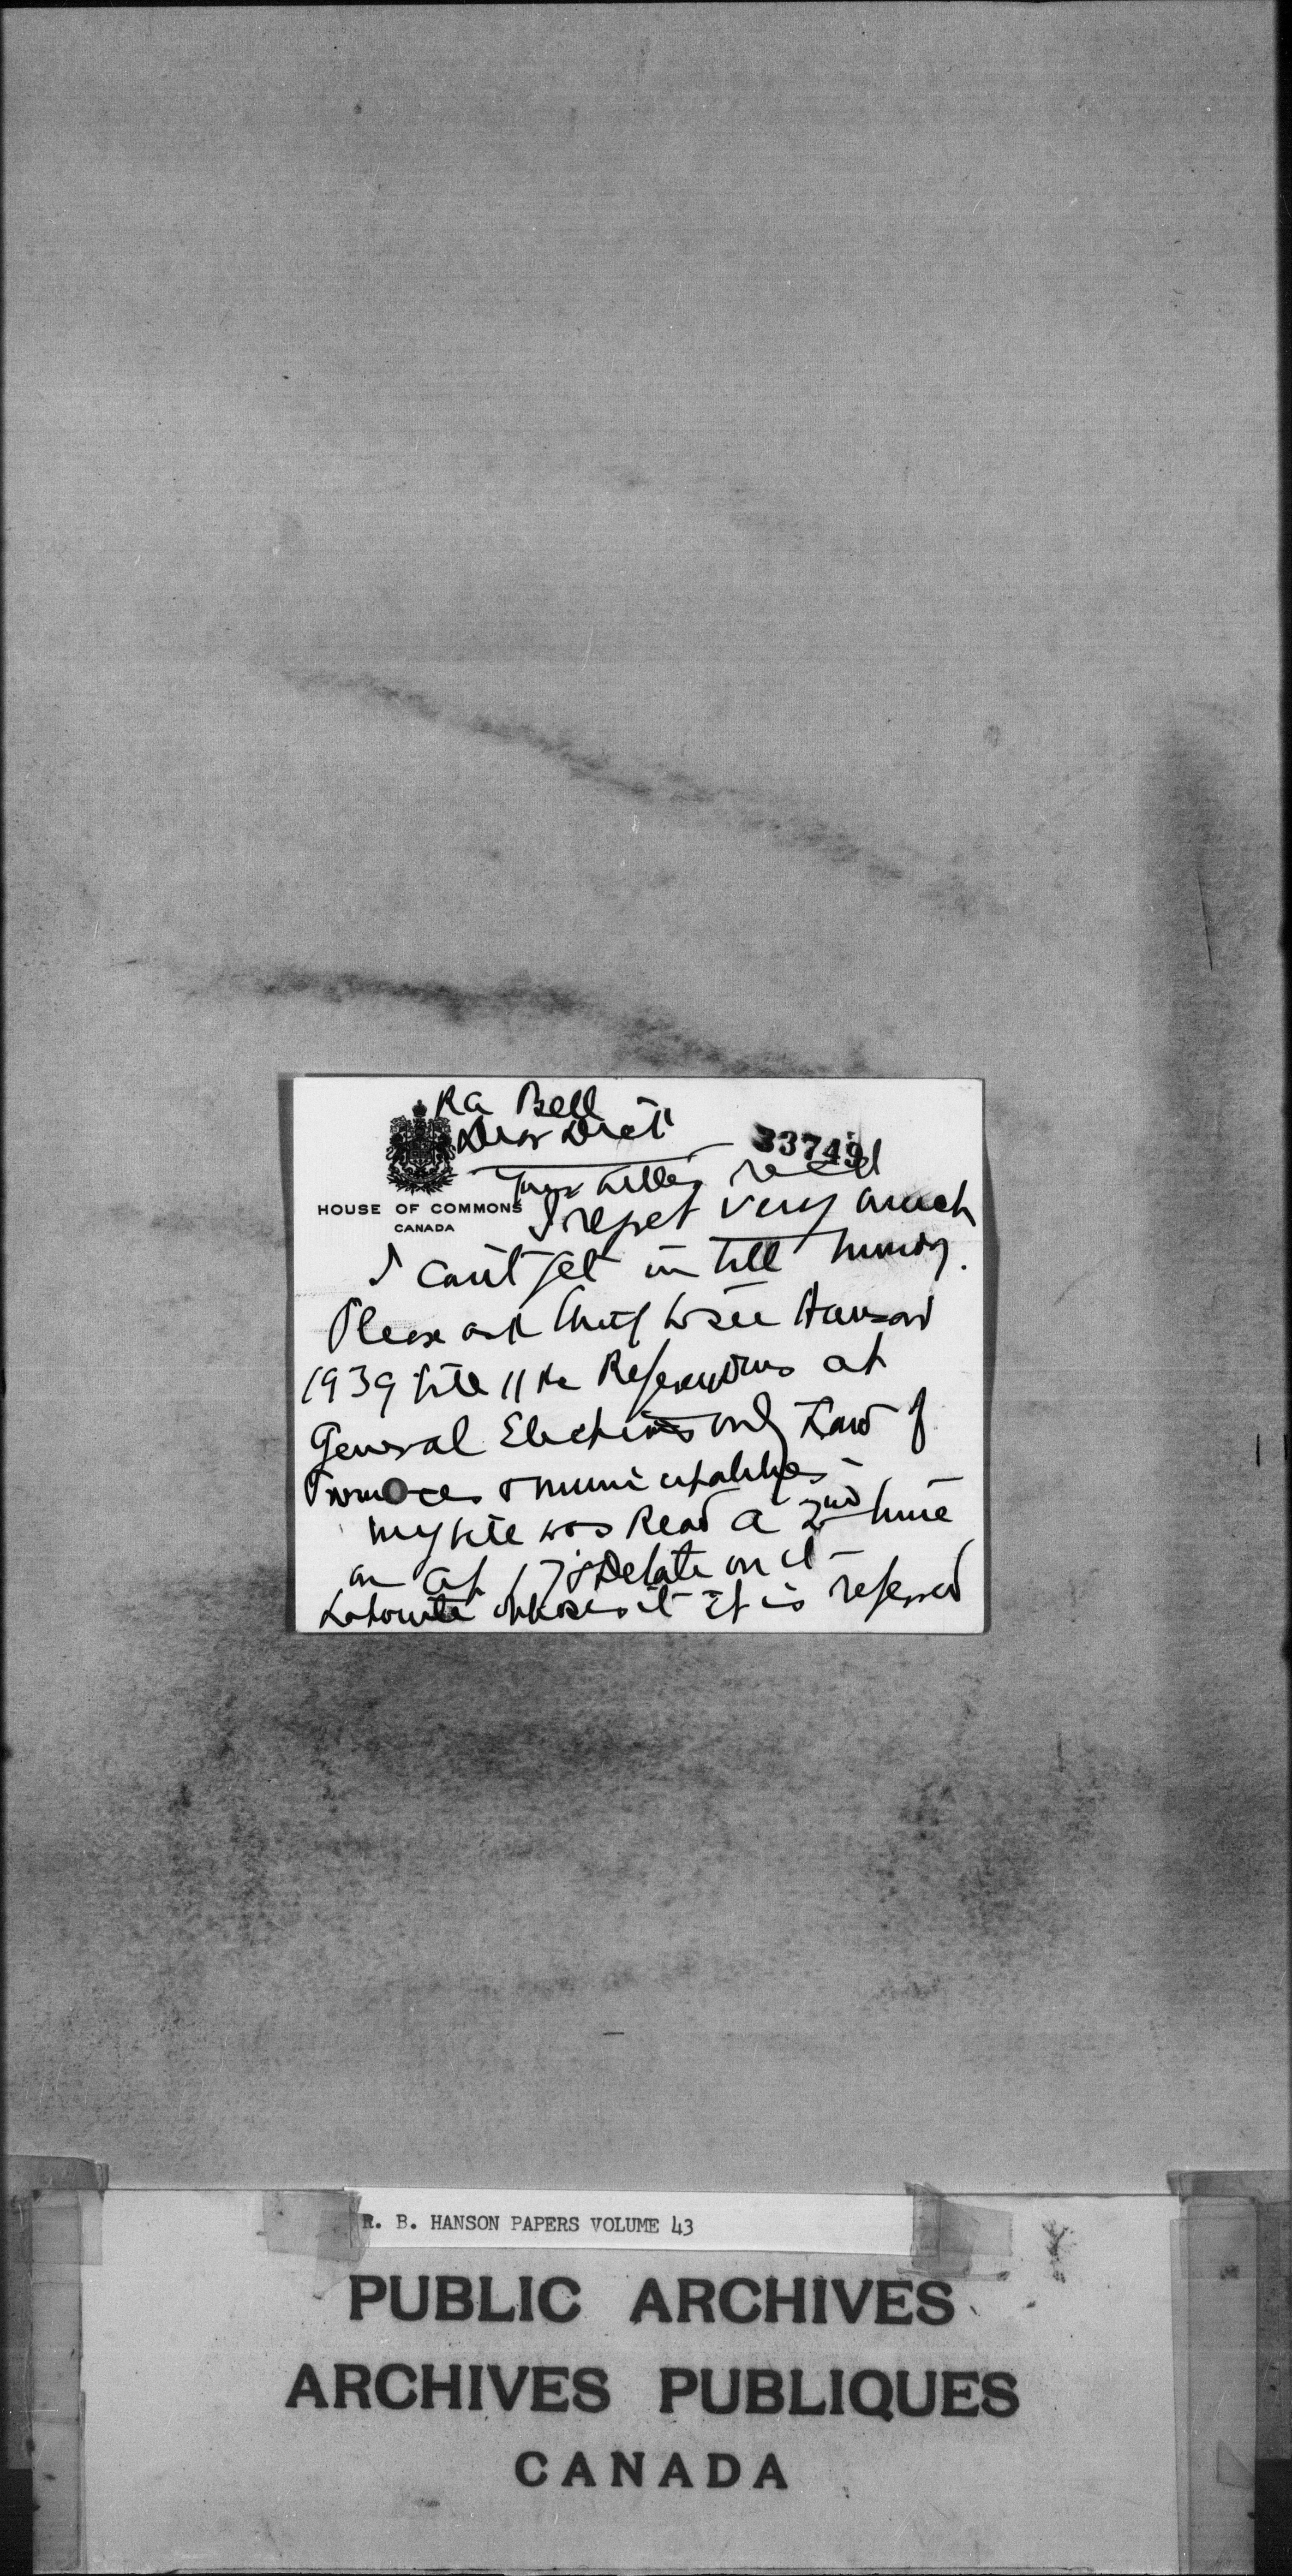 R A Bell
Dear Dick
33749
Your letter rec'd
HOUSE OF COMMONS
CANADA
I regret very much
I can't get in till
Please ask Chief to see Hansard
1939 Bill 11 re Referendums at
General Elections only Law of
Provinces & municipalities -
my bill was Read a 2nd time
on Ap 17 Debate on it -
Lapointe opposes it It is refused
R. B. HANSON PAPERS VOLUME 43
PUBLIC ARCHIVES
ARCHIVES PUBLIQUES
CANADA